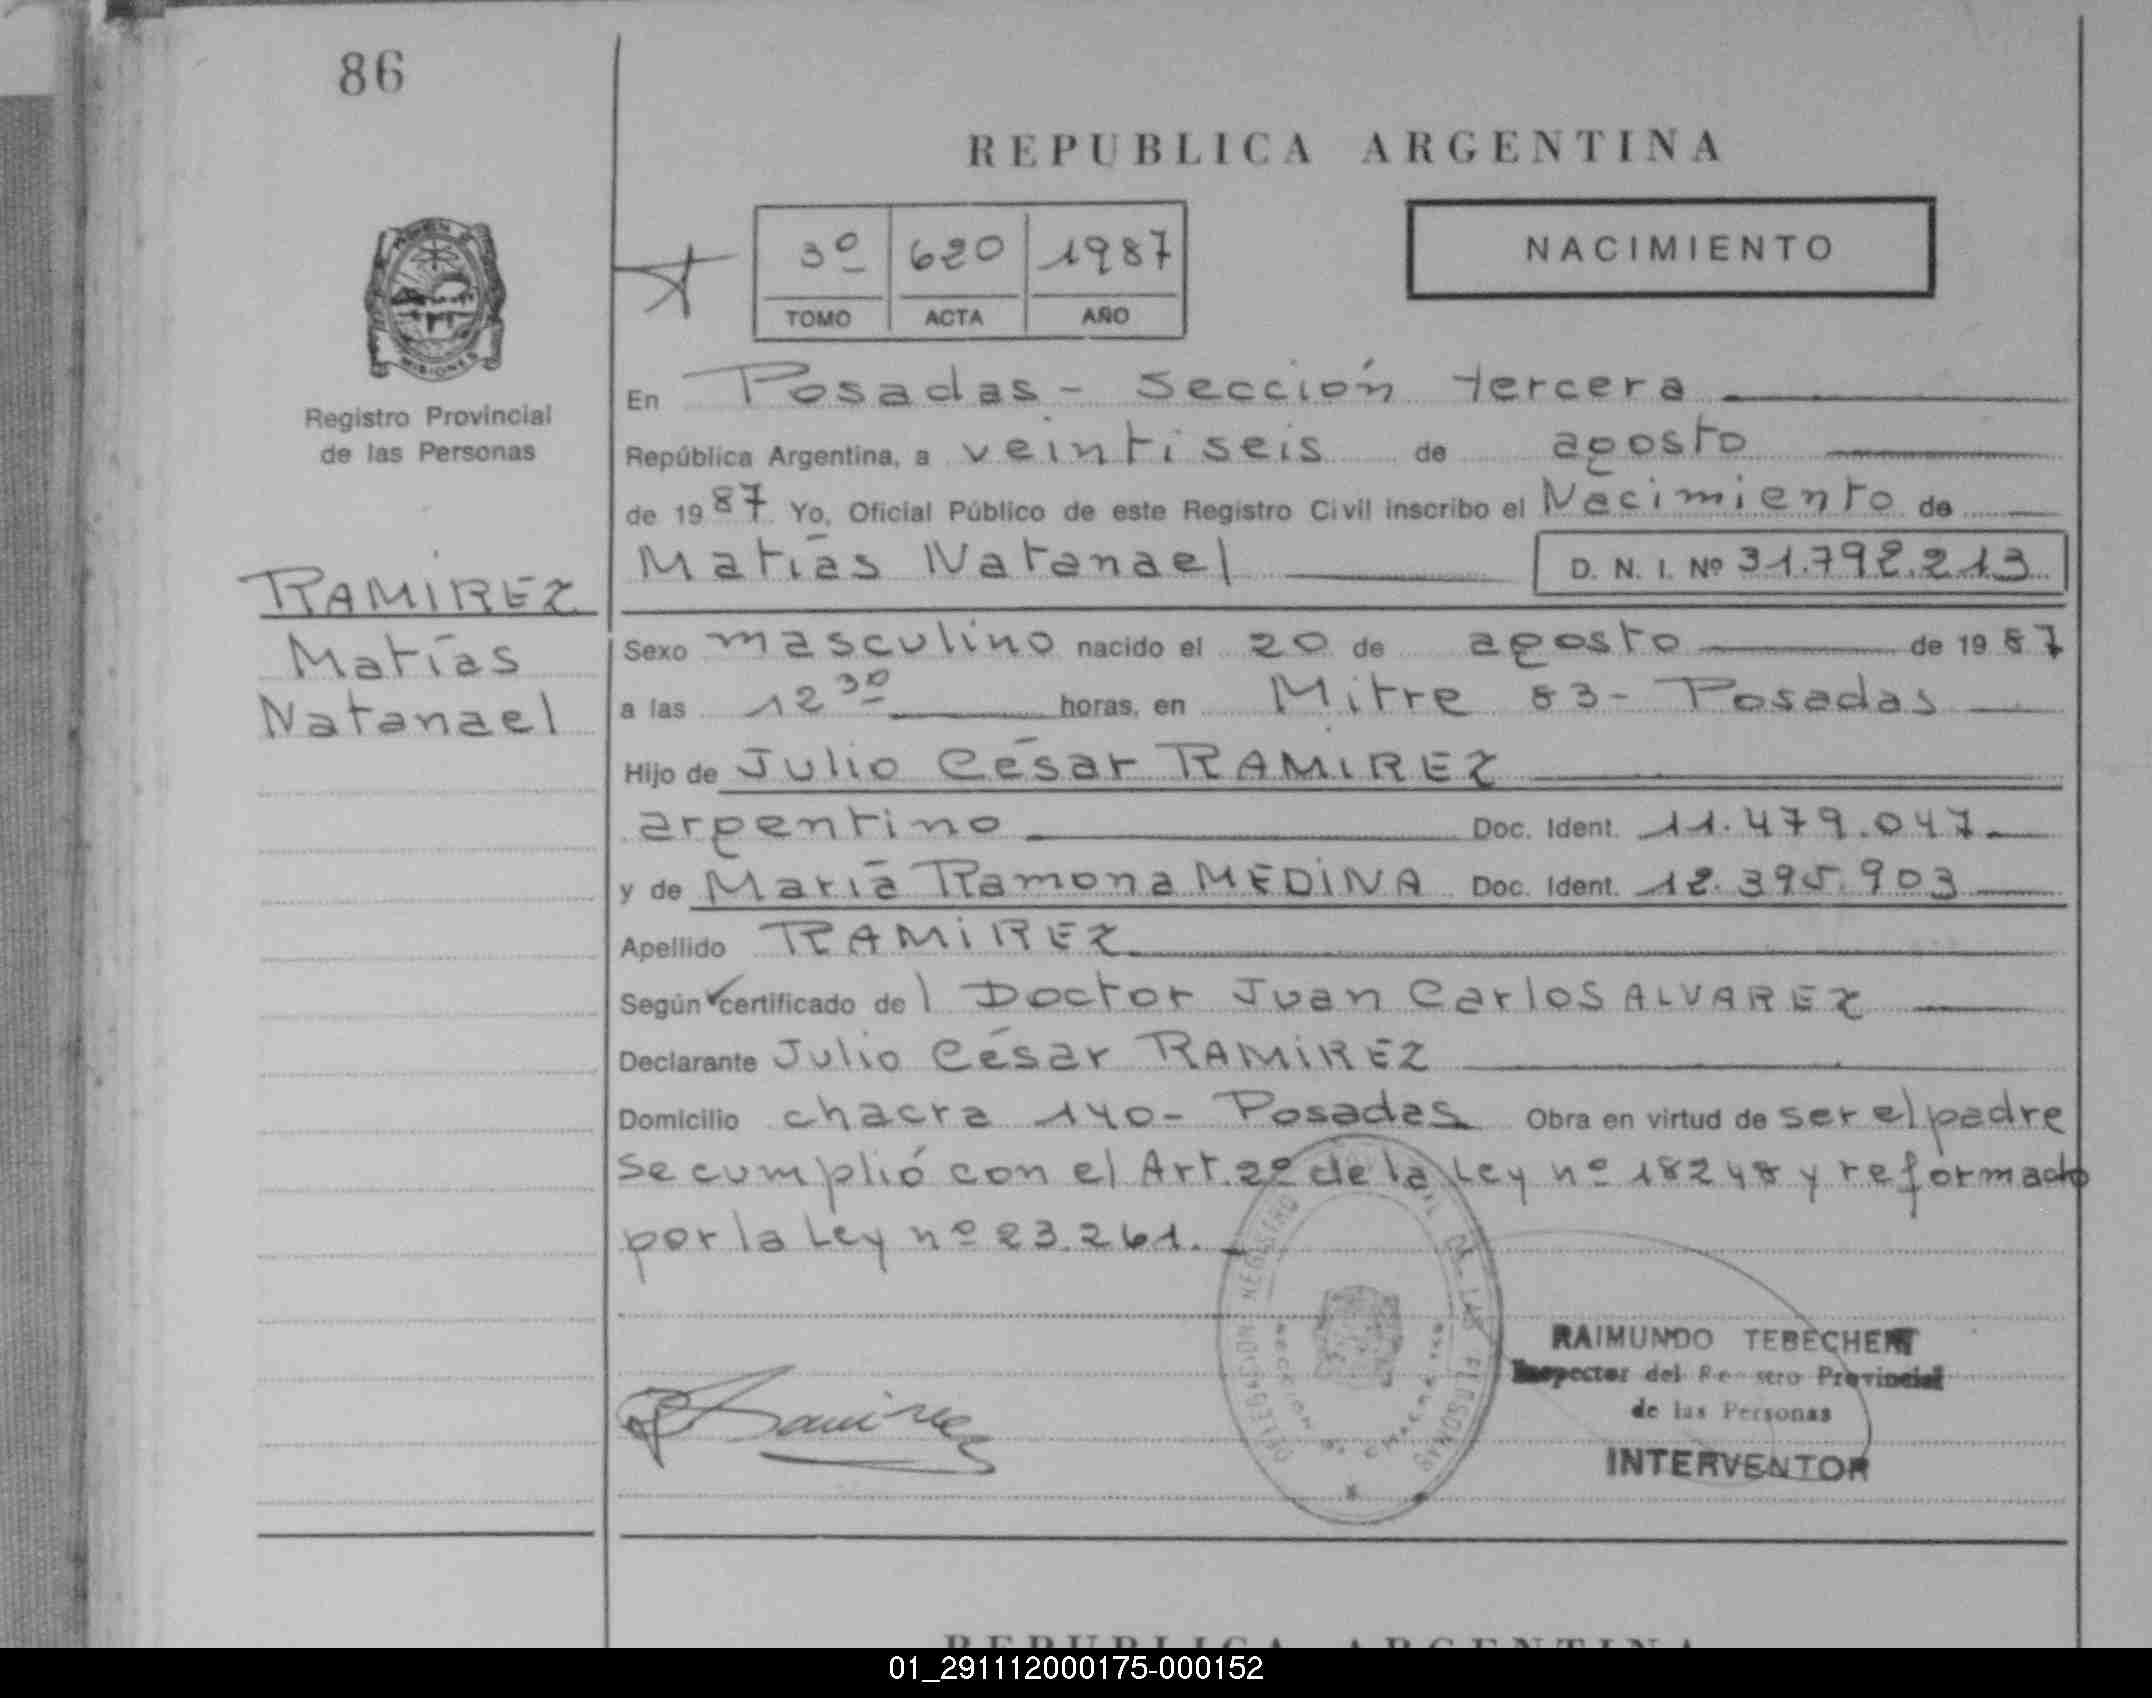 86
REPUBLICA ARGENTINA
3º 620 1987
TOMO ACTA AÑO
NACIMIENTO
MISIONES
Registro Provincial
de las Personas
En Posadas - Sección tercera
República Argentina, a veintiseis de agosto
de 1987 Yo, Oficial Público de este Registro Civil inscribo el Nacimiento de
Matías Natanael D. N. I. Nº 31.792.213
RAMIREZ
Matías
Natanael
Sexo masculino nacido el 20 de agosto de 1987
a las 12 30 horas, en Mitre 83 - Posadas
Hijo de Julio César RAMIREZ
argentino Doc. Ident. 11.479.047
y de María Ramona MEDINA Doc. Ident. 12.395.903
Apellido RAMIREZ
Según certificado del Doctor Juan Carlos ALVAREZ
Declarante Julio César RAMIREZ
Domicilio chacra 140 - Posadas Obra en virtud de ser el padre
Se cumplió con el Art. 2º de la Ley nº 18248 y reformado
por la Ley nº 23.261.
DELEGACION REGISTRO DE LAS PERSONAS
Ramirez
RAIMUNDO TEBECHERI
Inspector del Registro Provincial
de las Personas
INTERVENTOR
REPUBLICA ARGENTINA
01_291112000175-000152